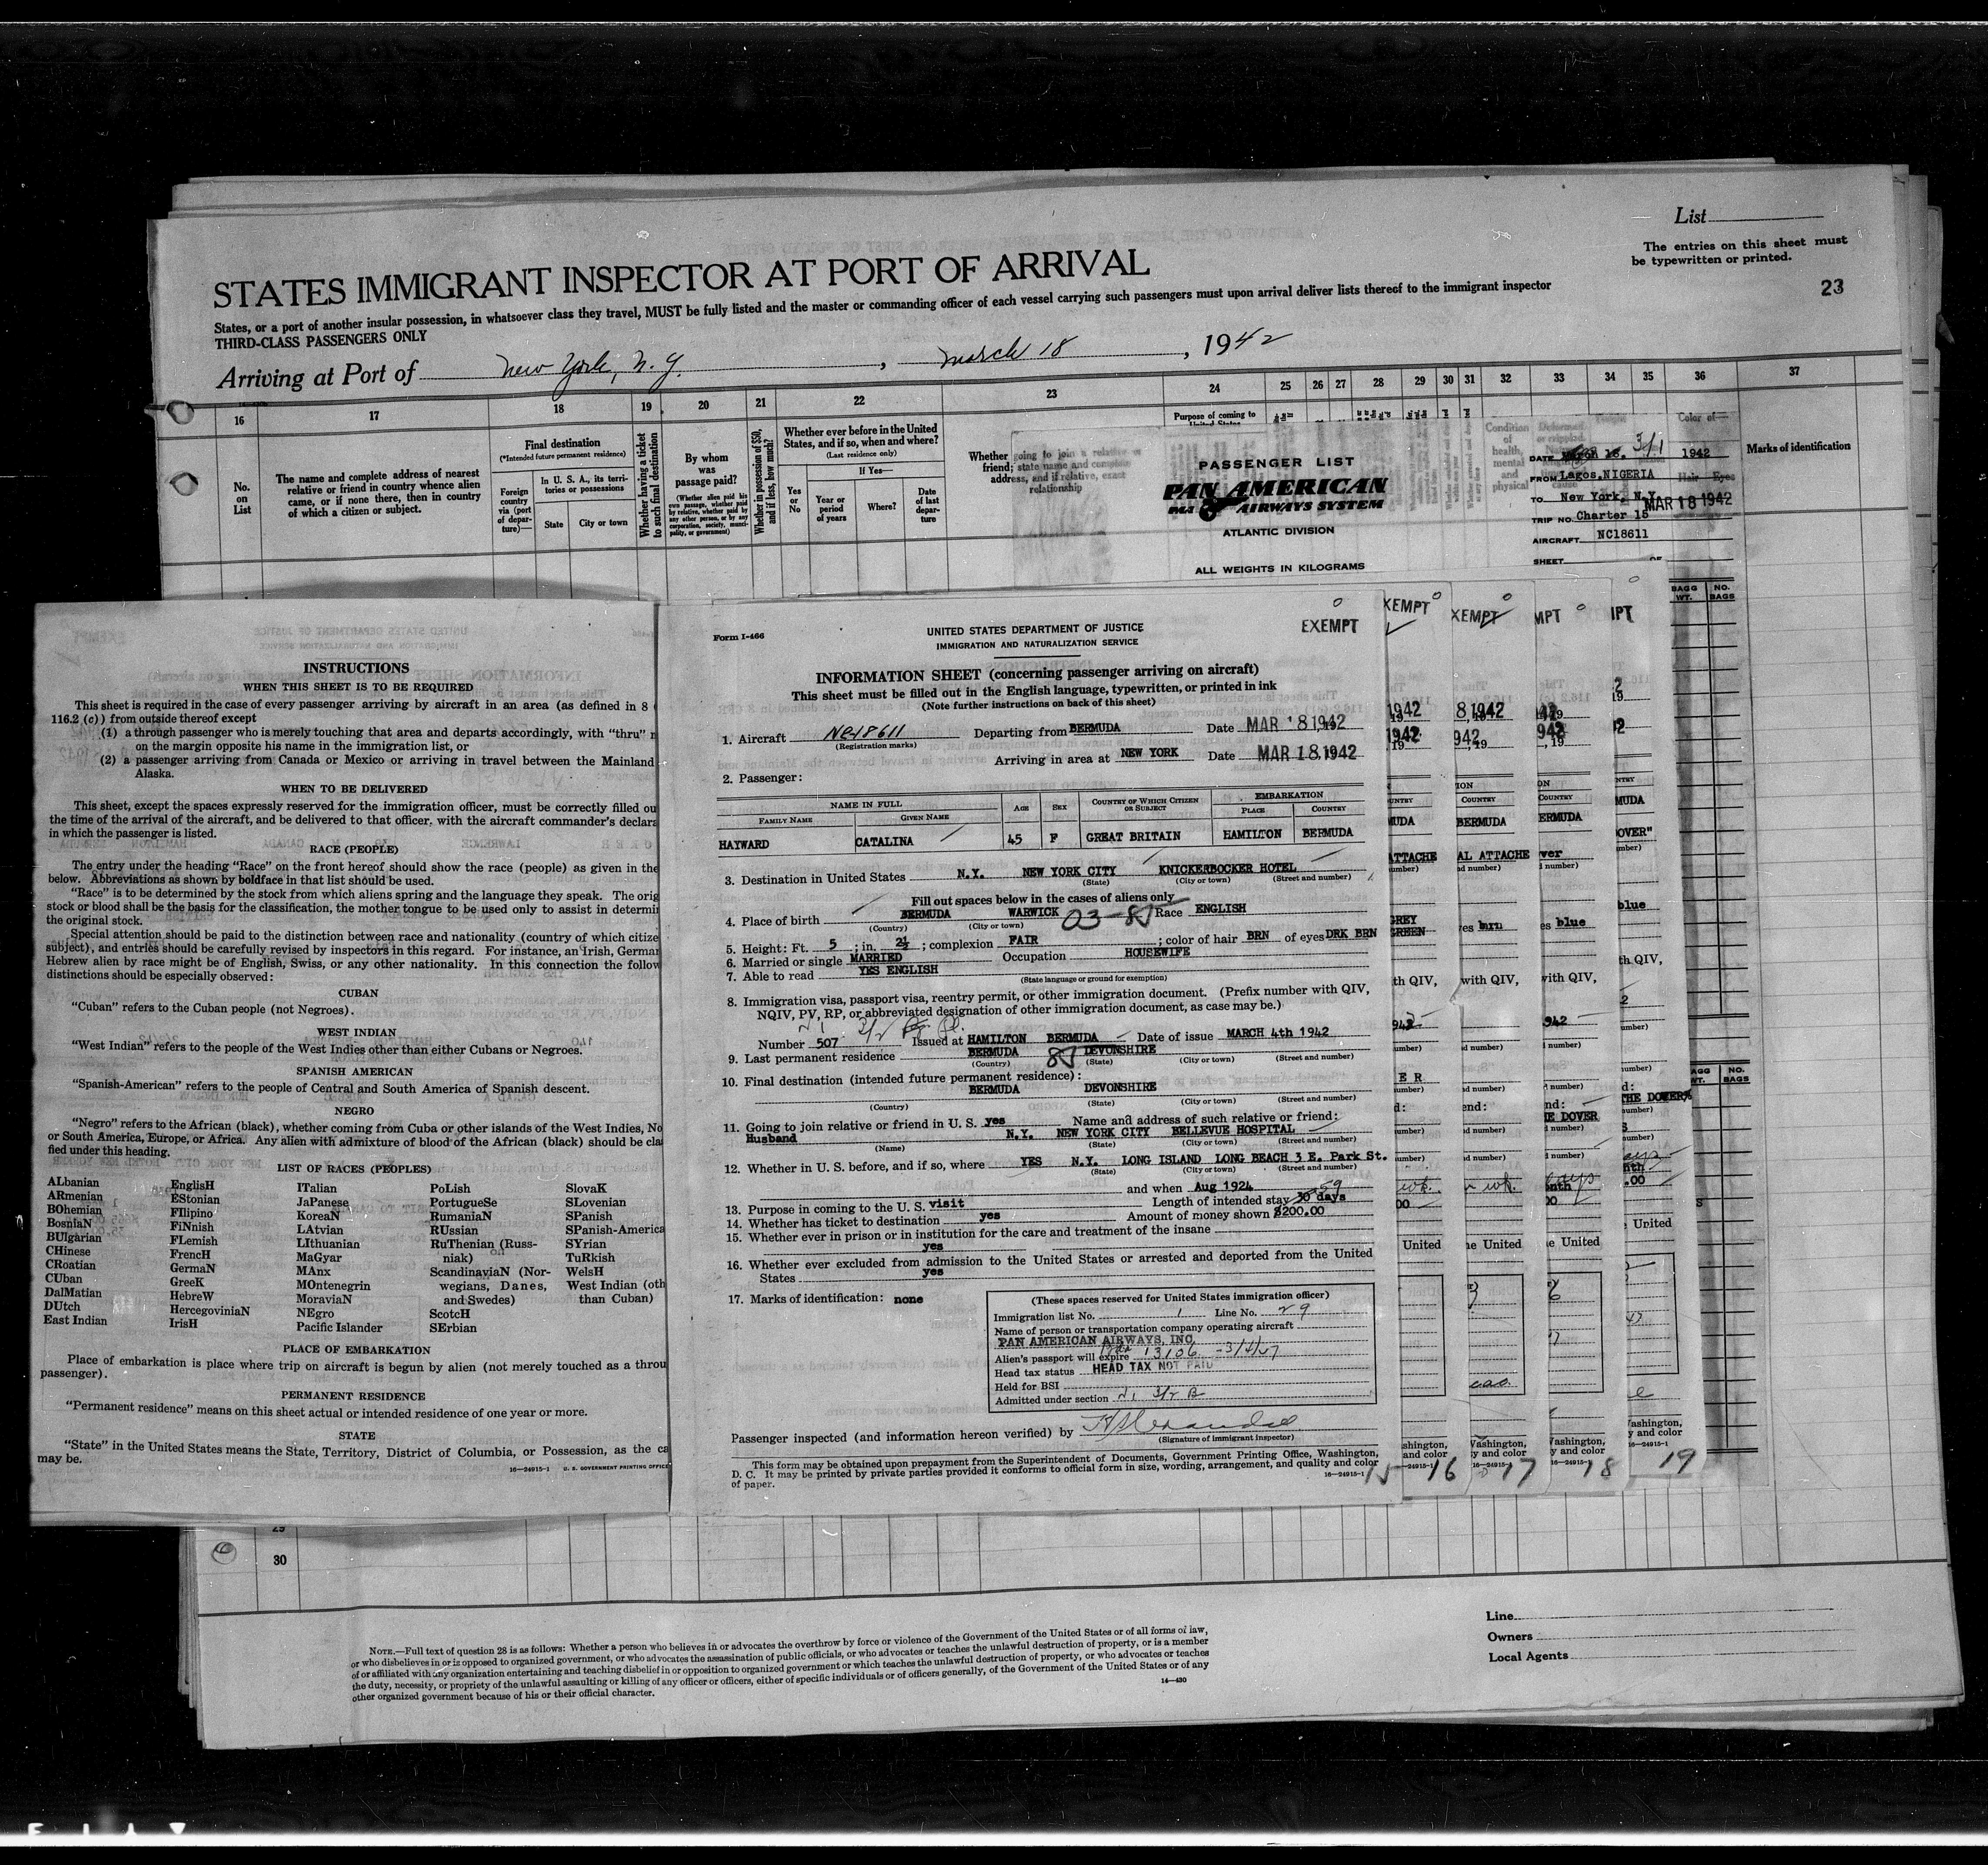 List
The entries on this sheet must
be typewritten or printed.
23
STATES IMMIGRANT INSPECTOR AT PORT OF ARRIVAL
States, or a port of another insular possession, in whatsoever class they travel, MUST be fully listed and the master or commanding officer of each vessel carrying such passengers must upon arrival deliver lists thereof to the immigrant inspector
THIRD-CLASS PASSENGERS ONLY
Arriving at Port of New York, N.Y., March 18, 1942
16 17 18 19 20 21 22 23 24 25 26 27 28 29 30 31 32 33 34 35 36 37
No. on List
The name and complete address of nearest
relative or friend in country whence alien
came, or if none there, then in country
of which a citizen or subject.
Final destination
(*Intended future permanent residence)
Foreign country via (port of departure)—
In U. S. A., its territories or possessions
State
City or town
Whether having a ticket to such final destination
By whom was passage paid?
(Whether alien paid his own passage, whether paid by relative, whether paid by any other person, or by any corporation, society, municipality, or government)
Whether in possession of $50, and if less, how much?
Whether ever before in the United
States, and if so, when and where?
(Last residence only)
If Yes—
Yes or No
Year or period of years
Where?
Date of last departure
Whether going to join a relative or
friend; state name and complete
address, and if relative, exact
relationship
Purpose of coming to
United States
Condition of health, mental and physical
Color of—
Hair Eyes
Marks of identification
PASSENGER LIST
PAN AMERICAN
AIRWAYS SYSTEM
ATLANTIC DIVISION
ALL WEIGHTS IN KILOGRAMS
DATE 3/1 1942
FROM Lagos, NIGERIA
TO New York, N.Y.
MAR 18 1942
TRIP NO. Charter 15
AIRCRAFT NC18611
SHEET OF
BAGG WT. NO. BAGS
INSTRUCTIONS
WHEN THIS SHEET IS TO BE REQUIRED
This sheet is required in the case of every passenger arriving by aircraft in an area (as defined in 8
116.2 (c)) from outside thereof except
(1) a through passenger who is merely touching that area and departs accordingly, with "thru"
on the margin opposite his name in the immigration list, or
(2) a passenger arriving from Canada or Mexico or arriving in travel between the Mainland
Alaska.
WHEN TO BE DELIVERED
This sheet, except the spaces expressly reserved for the immigration officer, must be correctly filled ou
the time of the arrival of the aircraft, and be delivered to that officer, with the aircraft commander's declara
in which the passenger is listed.
RACE (PEOPLE)
The entry under the heading "Race" on the front hereof should show the race (people) as given in the
below. Abbreviations as shown by boldface in that list should be used.
"Race" is to be determined by the stock from which aliens spring and the language they speak. The orig
stock or blood shall be the basis for the classification, the mother tongue to be used only to assist in determi
the original stock.
Special attention should be paid to the distinction between race and nationality (country of which citize
subject), and entries should be carefully revised by inspectors in this regard. For instance, an Irish, German
Hebrew alien by race might be of English, Swiss, or any other nationality. In this connection the follow
distinctions should be especially observed:
CUBAN
"Cuban" refers to the Cuban people (not Negroes).
WEST INDIAN
"West Indian" refers to the people of the West Indies other than either Cubans or Negroes.
SPANISH AMERICAN
"Spanish-American" refers to the people of Central and South America of Spanish descent.
NEGRO
"Negro" refers to the African (black), whether coming from Cuba or other islands of the West Indies, No
or South America, Europe, or Africa. Any alien with admixture of blood of the African (black) should be cla
fied under this heading.
LIST OF RACES (PEOPLES)
ALbanian
ARmenian
BOhemian
BosniaN
BUlgarian
CHinese
CRoatian
CUban
DalMatian
DUtch
East Indian
EnglisH
EStonian
FIlipino
FiNnish
FLemish
FrencH
GermaN
GreeK
HebreW
HercegoviniaN
IrisH
ITalian
JaPanese
KoreaN
LAtvian
LIthuanian
MaGyar
MAnx
MOntenegrin
MoraviaN
NEgro
Pacific Islander
PoLish
PortugueSe
RumaniaN
RUssian
RuThenian (Russ-
niak)
ScandinaviaN (Nor-
wegians, Danes,
and Swedes)
ScotcH
SErbian
SlovaK
SLovenian
SPanish
SPanish-America
SYrian
TuRkish
WelsH
West Indian (oth
than Cuban)
PLACE OF EMBARKATION
Place of embarkation is place where trip on aircraft is begun by alien (not merely touched as a throu
passenger).
PERMANENT RESIDENCE
"Permanent residence" means on this sheet actual or intended residence of one year or more.
STATE
"State" in the United States means the State, Territory, District of Columbia, or Possession, as the ca
may be.
16—24915-1 U. S. GOVERNMENT PRINTING OFFICE
Form I-466
UNITED STATES DEPARTMENT OF JUSTICE
IMMIGRATION AND NATURALIZATION SERVICE
EXEMPT
INFORMATION SHEET (concerning passenger arriving on aircraft)
This sheet must be filled out in the English language, typewritten, or printed in ink
(Note further instructions on back of this sheet)
1. Aircraft NC18611 Departing from BERMUDA Date MAR 18 1942
(Registration marks)
Arriving in area at NEW YORK Date MAR 18 1942
2. Passenger:
NAME IN FULL AGE SEX COUNTRY OF WHICH CITIZEN OR SUBJECT EMBARKATION
FAMILY NAME GIVEN NAME PLACE COUNTRY
HAYWARD CATALINA 45 F GREAT BRITAIN HAMILTON BERMUDA
3. Destination in United States N.Y. NEW YORK CITY KNICKERBOCKER HOTEL
(State) (City or town) (Street and number)
Fill out spaces below in the cases of aliens only
4. Place of birth BERMUDA WARWICK 03-85 Race ENGLISH
(Country) (City or town)
5. Height: Ft. 5; in. 2½; complexion FAIR; color of hair BRN of eyes DRK BRN
6. Married or single MARRIED Occupation HOUSEWIFE
7. Able to read YES ENGLISH
(State language or ground for exemption)
8. Immigration visa, passport visa, reentry permit, or other immigration document. (Prefix number with QIV,
NQIV, PV, RP, or abbreviated designation of other immigration document, as case may be.)
Number 507 Issued at HAMILTON BERMUDA Date of issue MARCH 4th 1942
9. Last permanent residence BERMUDA 85 DEVONSHIRE
(Country) (State) (City or town) (Street and number)
10. Final destination (intended future permanent residence):
BERMUDA DEVONSHIRE
(Country) (State) (City or town) (Street and number)
11. Going to join relative or friend in U. S. yes Name and address of such relative or friend:
Husband N.Y. NEW YORK CITY BELLEVUE HOSPITAL
(Name) (State) (City or town) (Street and number)
12. Whether in U. S. before, and if so, where YES N.Y. LONG ISLAND LONG BEACH 3 E. Park St.
(State) (City or town) (Street and number)
and when Aug 1924
13. Purpose in coming to the U. S. visit Length of intended stay 30 days 59
14. Whether has ticket to destination yes Amount of money shown $200.00
15. Whether ever in prison or in institution for the care and treatment of the insane
yes
16. Whether ever excluded from admission to the United States or arrested and deported from the United
States yes
17. Marks of identification: none
(These spaces reserved for United States immigration officer)
Immigration list No. 1 Line No. 29
Name of person or transportation company operating aircraft
PAN AMERICAN AIRWAYS, INC
Alien's passport will expire 13106 - 3/4/47
Head tax status HEAD TAX NOT PAID
Held for BSI
Admitted under section 3/2 B
Passenger inspected (and information hereon verified) by
(Signature of immigrant inspector)
This form may be obtained upon prepayment from the Superintendent of Documents, Government Printing Office, Washington,
D. C. It may be printed by private parties provided it conforms to official form in size, wording, arrangement, and quality and color
of paper.
16—24915-1
15 16 17 18 19
30
NOTE.—Full text of question 28 is as follows: Whether a person who believes in or advocates the overthrow by force or violence of the Government of the United States or of all forms of law,
or who disbelieves in or is opposed to organized government, or who advocates the assassination of public officials, or who advocates or teaches the unlawful destruction of property, or is a member
of or affiliated with any organization entertaining and teaching disbelief in or opposition to organized government or which teaches the unlawful destruction of property, or who advocates or teaches
the duty, necessity, or propriety of the unlawful assaulting or killing of any officer or officers, either of specific individuals or of officers generally, of the Government of the United States or of any
other organized government because of his or their official character.
14—430
Line
Owners
Local Agents